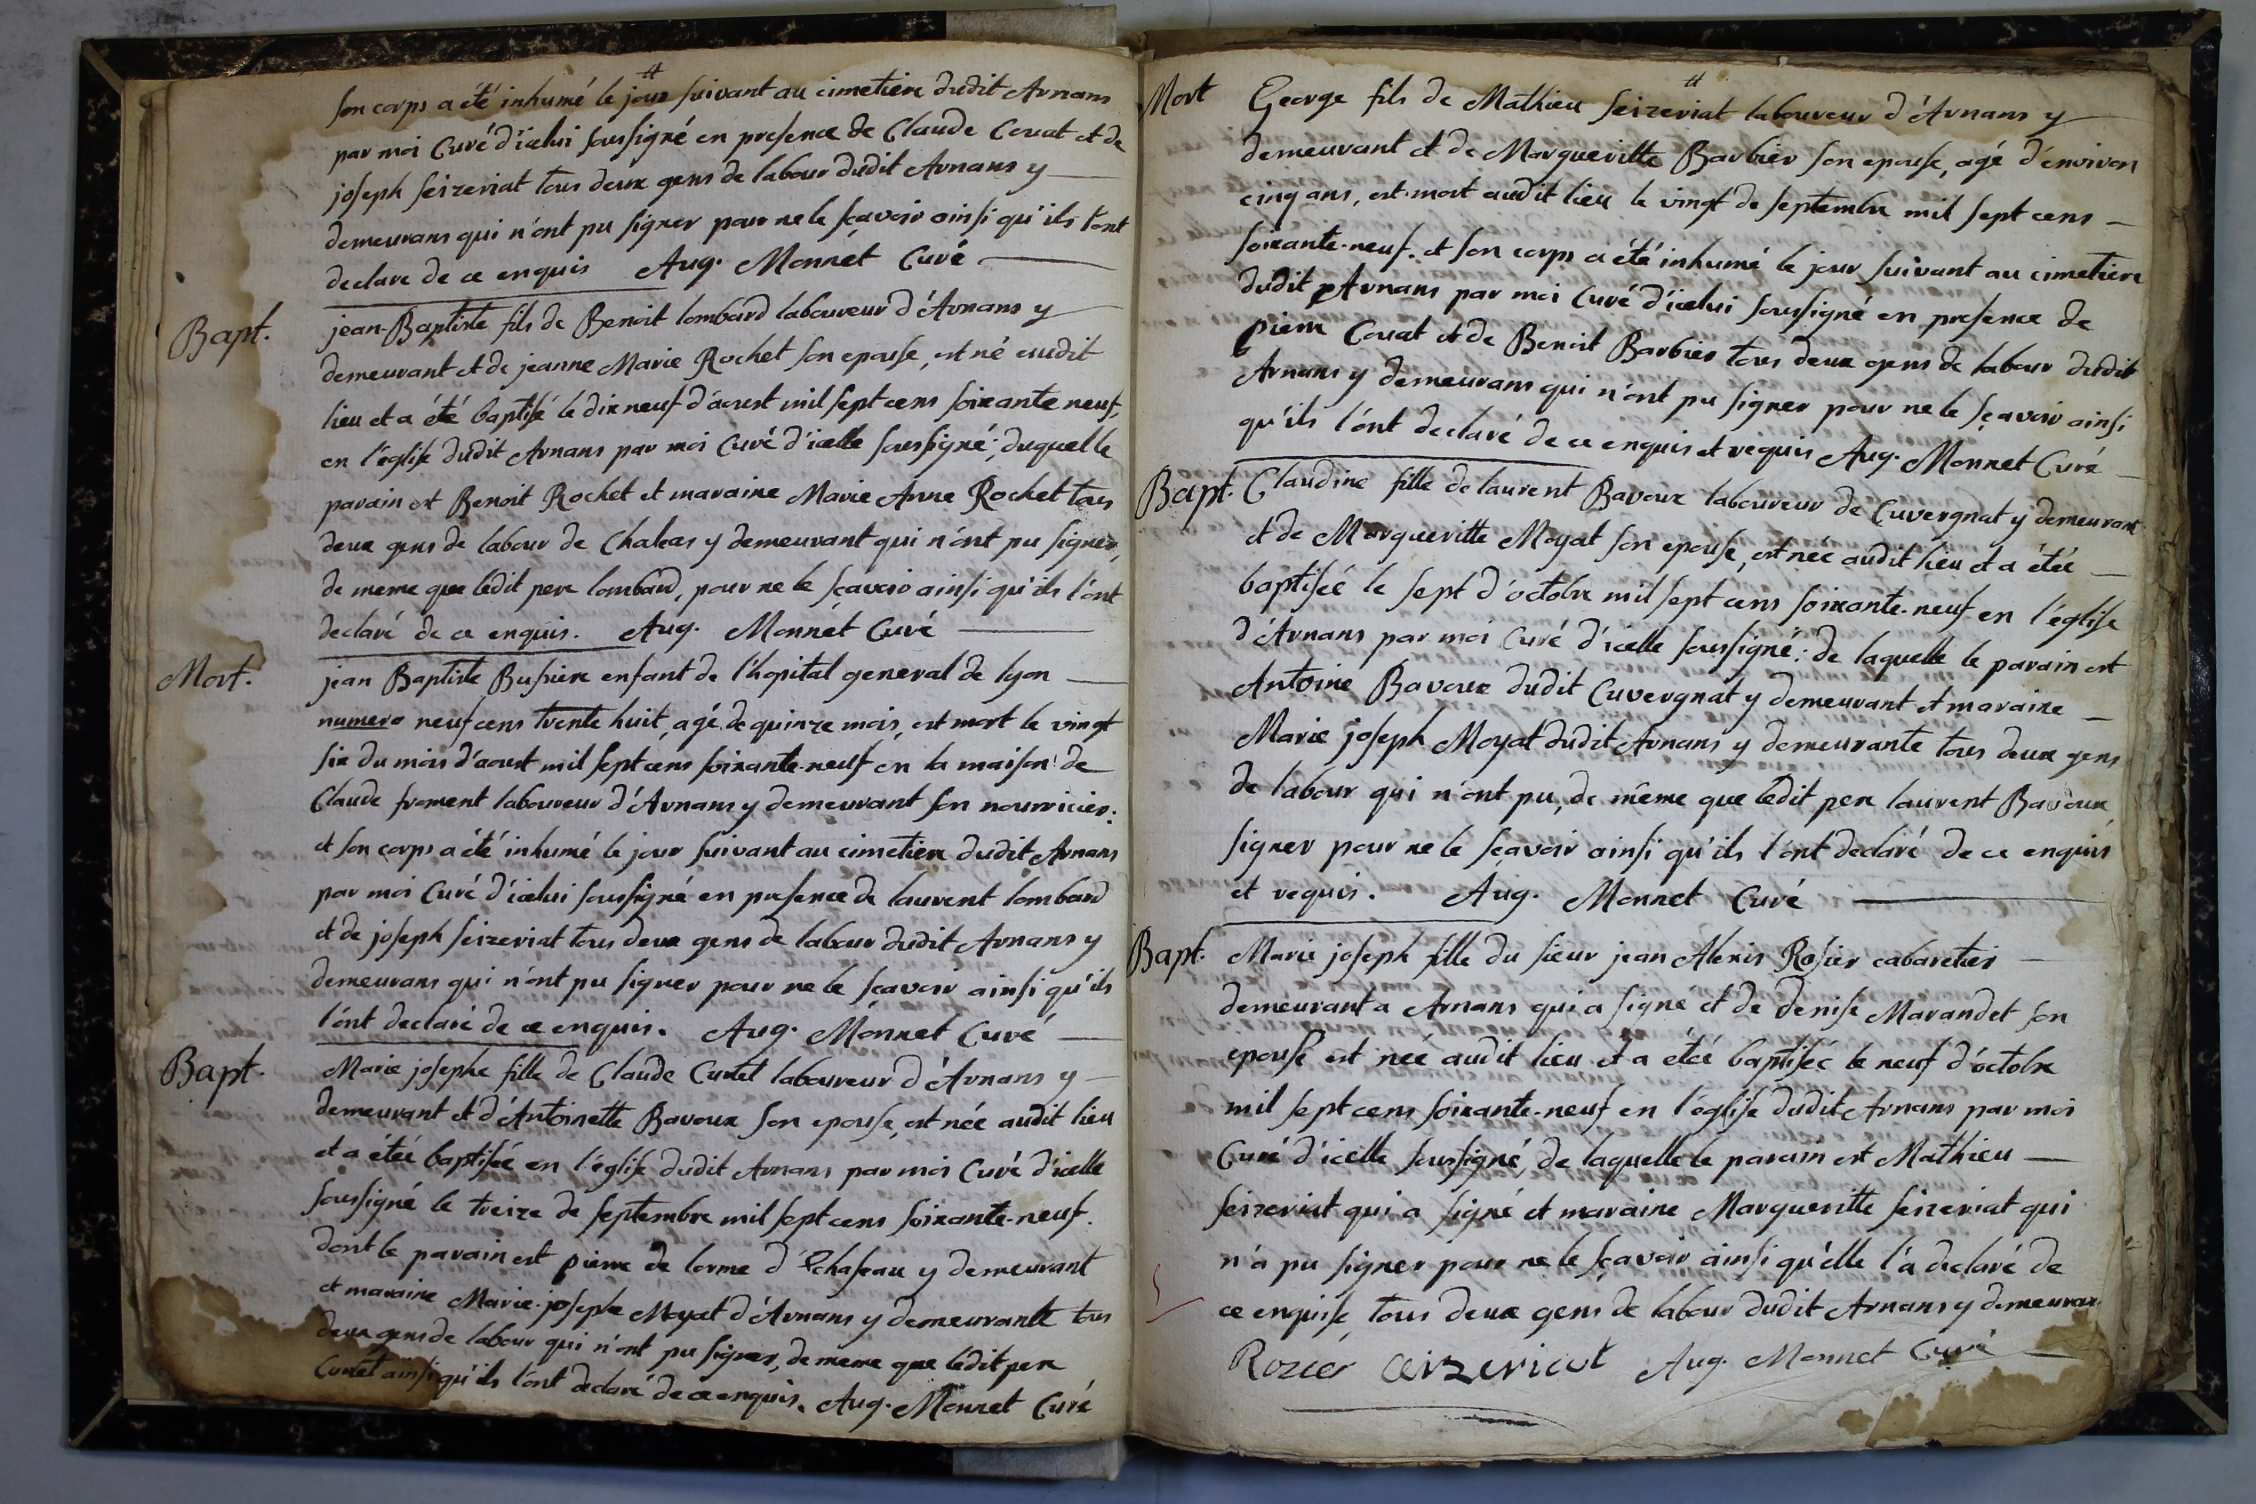 son corps a été inhumé le jour suivant au cimetiere dudit Arnans
par moi Curé d'icelui soussigné en presence de Claude Couat et de
joseph seizeriat tous deux gens de labour dudit Arnans y
demeurans qui n'ont pu signer pour ne le sçavoir ainsi qu'ils l'ont
declare de ce enquis Aug. Monnet Curé
Bapt. jean-Baptiste fils de Benoit lombard laboureur d'Arnans y
demeurant et de jeanne Marie Rochet son epouse, est né audit
lieu et a été baptisé le dix neuf d'aoust mil sept cens soixante neuf,
en l'église dudit Arnans par moi Curé d'icelle soussigné; duquel le
parain est Benoit Rochet et maraine Marie Anne Rochet tous
deux gens de labour de Chaleas y demeurant qui n'ont pu signer,
de meme que ledit pere lombard, pour ne le sçavoir ainsi qu'ils l'ont
declaré de ce enquis. Aug. Monnet Curé
Mort. jean Baptiste Busiere enfant de l'hopital general de lyon
numero neuf cens trente huit, agé de quinze mois, est mort le vingt
six du mois d'aoust mil sept cens soixante-neuf en la maison de
Claude froment laboureur d'Arnans y demeurant son nourricier:
et son corps a été inhumé le jour suivant au cimetiere dudit Arnans
par moi Curé d'icelui soussigné en presence de laurent lombard
et de joseph seizeriat tous deux gens de labour dudit Arnans y
demeurans qui n'ont pu signer pour ne le sçavoir ainsi qu'ils
l'ont declaré de ce enquis. Aug. Monnet Curé
Bapt. Marie josephe fille de Claude Curtet laboureur d'Arnans y
demeurant et d'Antoinette Bavoux son epouse, est née audit lieu
et a étée baptisée en l'église dudit Arnans par moi Curé d'icelle
soussigné le treize de septembre mil sept cens soixante-neuf.
dont le parain est pierre de lorme d'Echaseau y demeurant
et maraine Marie-josephe Moyat d'Arnans y demeurante tous
deux gens de labour qui n'ont pu signer, de meme que ledit pere
Curtet ainsi qu'ils l'ont declaré de ce enquis. Aug. Monnet Curé
Mort George fils de Mathieu seizeriat laboureur d'Arnans y
demeurant et de Margueritte Barbier son epouse, agé d'environ
cinq ans, est mort audit lieu le vingt de septembre mil sept cens
soixante-neuf. et son corps a été inhumé le jour suivant au cimetiere
dudit Arnans par moi Curé d'icelui soussigné en presence de
pierre Couat et de Benoit Barbier tous deux gens de labour dudit
Arnans y demeurans qui n'ont pu signer pour ne le sçavoir ainsi
qu'ils l'ont declaré de ce enquis et requis Aug. Monnet Curé
Bapt. Claudine fille de laurent Bavoux laboureur de Cuvergnat y demeurant
et de Margueritte Moyat son epouse, est née audit lieu et a étée
baptisée le sept d'octobre mil sept cens soixante-neuf en l'église
d'Arnans par moi Curé d'icelle soussigné: de laquelle le parain est
Antoine Bavoux dudit Cuvergnat y demeurant et maraine
Marie joseph Moyat dudit Arnans y demeurante tous deux gens
de labour qui n'ont pu, de même que ledit pere laurent Bavoux,
signer pour ne le sçavoir ainsi qu'ils l'ont declaré de ce enquis
et requis. Aug. Monnet Curé
Bapt. Marie joseph fille du sieur jean Alexis Rosier cabaretier
demeurant a Arnans qui a signé et de denise Marandet son
epouse est née audit lieu et a étée baptisée le neuf d'octobre
mil sept cens soixante-neuf en l'église dudit Arnans par moi
Curé d'icelle soussigné, de laquelle le parain est Mathieu
seizeriat qui a signé et maraine Margueritte seizeriat qui
n'a pu signer pour ne le sçavoir ainsi qu'elle l'a declaré de
ce enquise, tous deux gens de labour dudit Arnans y demeurans
Rozier ceizeriat Aug. Monnet Curé